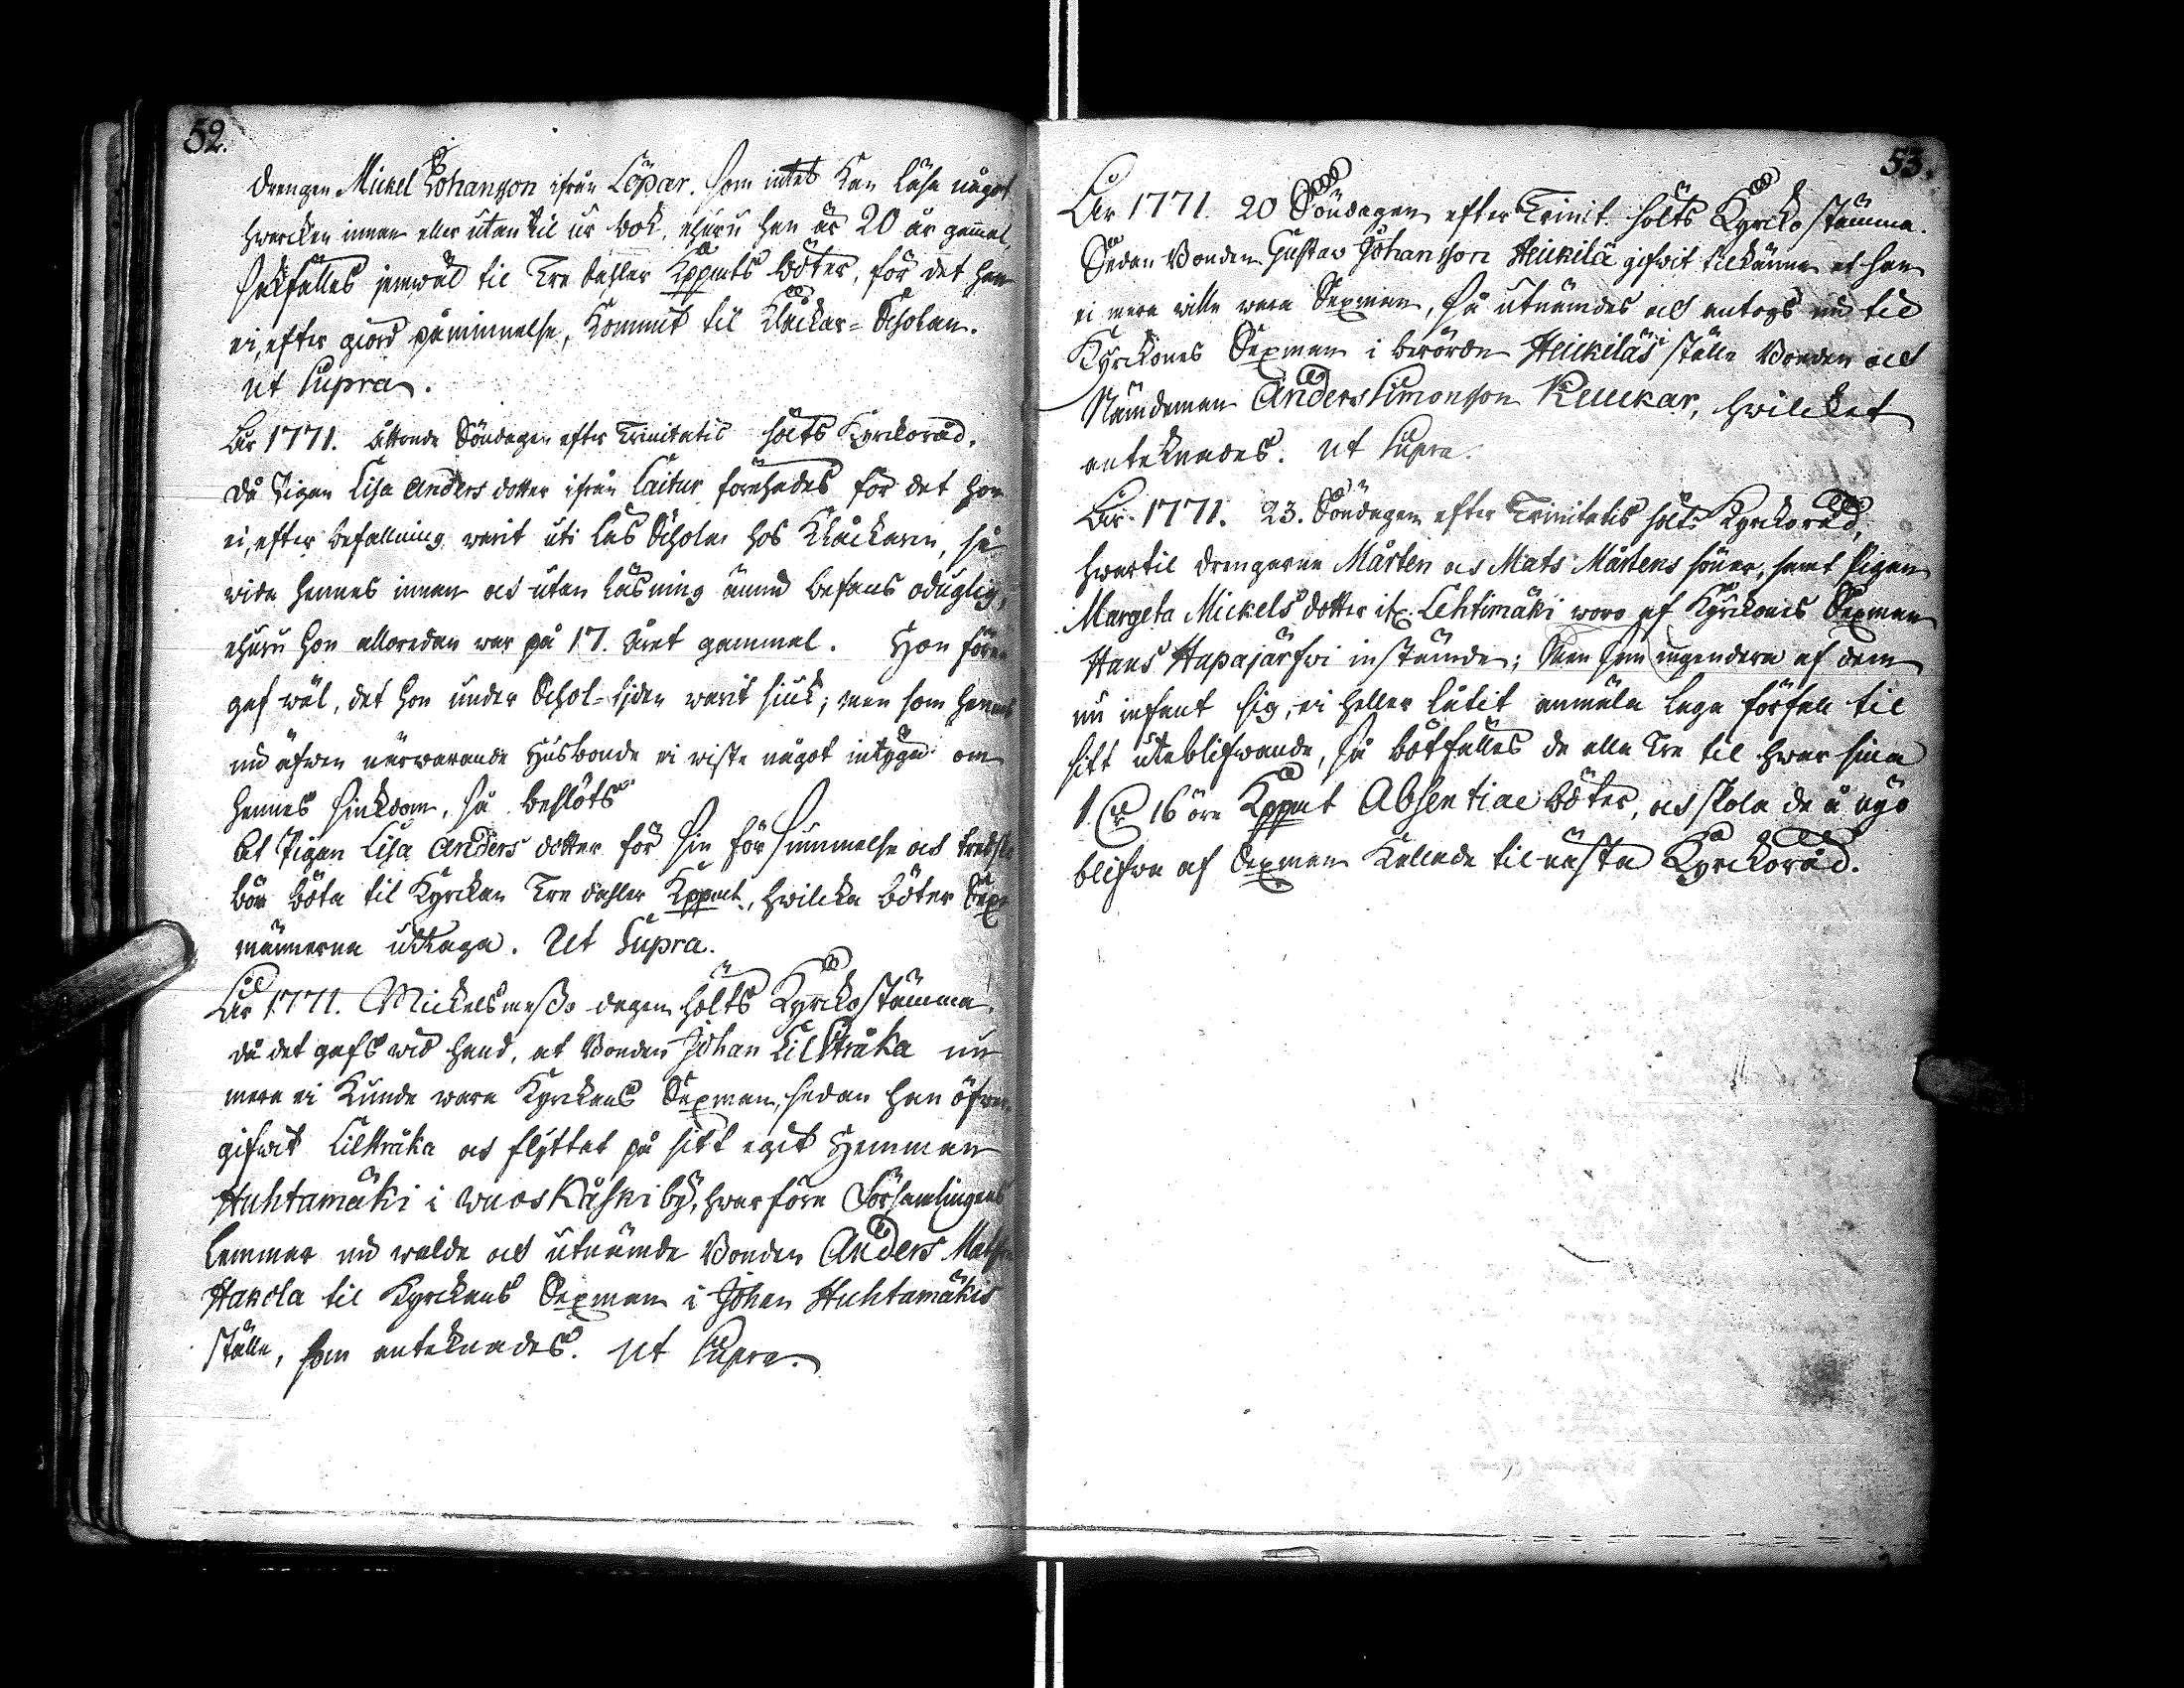 52.
drengen Mickel Johansson ifrån Löpar. som intet kan läsa något
hwarcken innan eller utan til ur bok, ehuru han är 20 år gammal,
sakfälles jemwäl til Tre daler Kppmts böter, för det han
ei, efter giord påminnelse, kommit til Klåckar-Scholan.
ut Supra.
År 1771. åttonde Söndagen efter Trinitatis hölts Kyrckoråd.
då Pigan Lisa Anders dotter ifrån Laitus förehades för det hon
ei, efter befallning warit uti Läs Scholan hos Klåckaren, så
wida hennes innan och utan läsning ännu befans oduglig,
ehuru hon alloredan war på 17. året gammal. Hon före-
gaf wäl, det hon under Schol-tiden warit siuk; men som hennes
nu äfwen närwarande Husbonde ei wiste något intyga om
hennes siukdom, så beslöts
At Pigan Lisa Anders dotter för sin försummelse och
bör böta til Kyrckan Tre daler Kppmt, hwilcka böter Sex-
männerna uttaga. Ut Supra.
År 1771. Mickelsmesso dagen hölts Kyrckostämma.
då det gafs wid hand, at Bonden Johan Lillstråka nu
mera ei kunde wara Kyrckans Sexman, sedan han öfwer-
gifwit Lillstråka och flyttat på sitt eget Hemman
Huhtamäki i Wuoskåski by, hwarföre Församlingens
Lemmar nu walde och utnämde Bonden Anders Matsson
Hakola til Kyrckans Sexman i Johan Huhtamäkis
ställe, som antecknades. ut Supra.
53.
År 1771. 20 Söndagen efter Trinit. hölts Kyrckostämma.
Sedan Bonden Gustav Johansson Heickilä gifwit tilkänna at han
ei mera wille wara Sexman, så utnämdes och antogs nu til
Kyrckones Sexman i berörde Heickiläs ställe Bonden och
Nämdeman Anders Simonsson Keuckar, hwilcket
antecknades. ut Supra.
År 1771. 23. Söndagen efter Trinitatis hölts Kyrckoråd,
hwartil drengarna Mårten och Mats Mårtens söner, samt Pigan
Margeta Mickels dotter Lehtimäki woro af Kyrckones Sexman
Hans Hapajärfwi instämde; Men som ingendera af dem
nu infant sig, ei heller låtit anmäla laga förfall til
sitt uteblifwande, så bötfälles de alla Tre til hwar sina
1 16 öre Kppmt Absentiae böter, och skola de å nyo
blifwa af Sexman kallade til nästa Kyrckoråd.